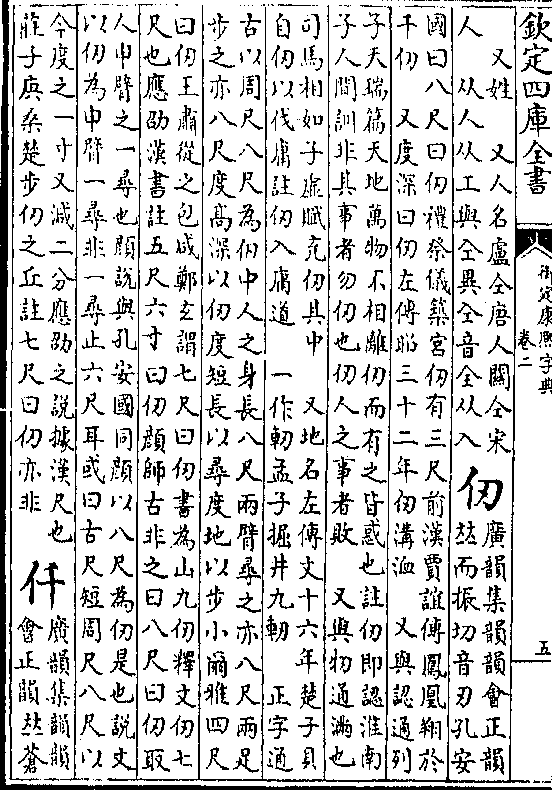 欽定四庫全書
御定康熙字典
卷二
五
又姓　又人名盧仝唐人闞仝宋
人　从人从工與仝異仝音仝从入
仞
廣韻集韻韻會正韻
𠀤而振切音刃孔安
國曰八尺曰仞禮祭儀築宮仞有三尺前漢賈誼傳鳳凰翔於
千仞　又度深曰仞左傳昭三十二年仞溝洫　又與認通列
子天瑞篇天地萬物不相離仞而有之皆惑也註仞即認淮南
子人間訓非其事者勿仞也仞人之事者敗　又與牣通滿也
司馬相如子虛賦充仞其中　又地名左傳文十六年楚子貝
自仞以伐庸註仞入庸道　一作軔孟子掘井九軔　正字通
古以周尺八尺為仞中人之身長八尺兩臂尋之亦八尺兩足
步之亦八尺度髙深以仞度短長以尋度地以步小爾雅四尺
曰仞王肅從之包咸鄭玄謂七尺曰仞書為山九仞釋文仞七
尺也應劭漢書註五尺六寸曰仞顏師古非之曰八尺曰仞取
人申臂之一尋也顏說與孔安國同顏以八尺為仞是也說文
以仞為申臂一尋非一尋止六尺耳或曰古尺短周尺八尺以
今度之一寸又減二分應劭之說據漢尺也
莊子庚桑楚步仞之丘註七尺曰仞亦非
仟
廣韻集韻韻
會正韻𠀤蒼